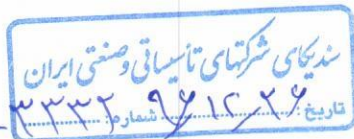 سندیکای شرکتهای تأسیساتی و صنعتی ایران
تاریخ ۹۶/۱۲/۲۶ شماره: ۳۳۳۲